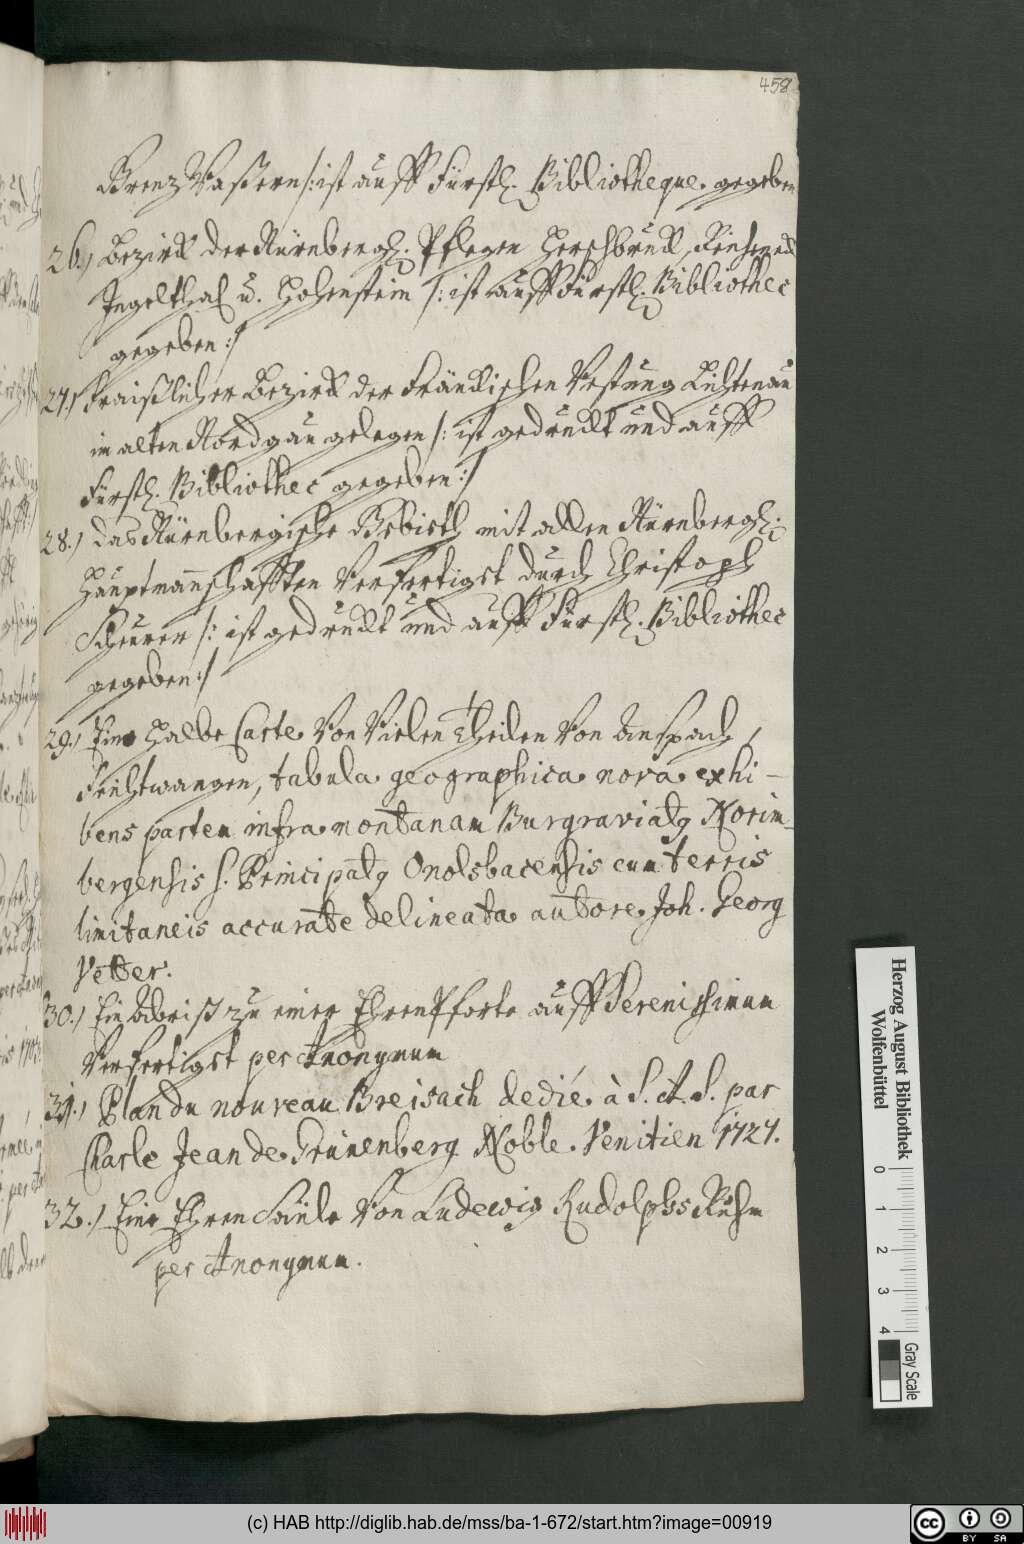 458
Grenz Waßern /: ist auff Fürstl. Bibliotheque gegeben
26.) Bezirk der Nürnbergl. Pflegen Herschbruck, Reicheneck
Engelthal u. Hohenstein /: ist auff Fürstl. Bibliothec
gegeben :/
27.) Fraißlicher Bezirk der Fränckischen Vestung Lichtenau
im alten Nordgau gelegen /: ist gedruckt und auff
Fürstl. Bibliothec gegeben :/
28.) das Nürnbergische Gebieth mit allen Nürnbergl.
Hauptmannschafften Verfertigt durch Christoph
Scheurer /: ist gedruckt und auff Fürstl. Bibliothec
gegeben :/
29.) Eine halbe Carte Von Vielen Theilen Von Anspach,
Feuchtwangen, tabula geographica nova exhi-
bens partem infra montanam Burgraviatg Norim-
bergensis s. Principatg Onolsbacensis cum terris
limitaneis accurate delineata autore Joh. Georg
Vetter.
30.) Ein Abriß zu einer Ehren Pforte auff Serenissimum
Verfertigt per Anonymum
31.) Plan du nouveau Breisach dedié à S. A. S. par
Charle Jean de Grünenberg Noble Venitien 1727.
32.) Eine Ehren Säule Von Ludewig Rudolphs Ruhm
per Anonymum.
Herzog August Bibliothek
Wolfenbüttel
0 1 2 3 4
Gray Scale
(c) HAB http://diglib.hab.de/mss/ba-1-672/start.htm?image=00919
cc BY SA